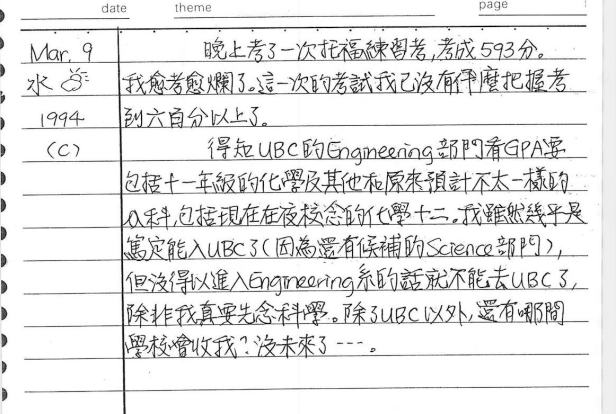 date theme page
Mar. 9 晚上考了一次托福練習考,考成593分。
水 我愈考愈爛了。這一次的考試我已沒有什麼把握考
1994 到六百分以上了。
(C) 得知UBC的Engineering部門看GPA要
包括十一年級的化學及其他和原來預計不太一樣的
科,包括現在在夜校念的化學十二。我雖然幾乎是
篤定能入UBC了(因為還有候補的Science部門),
但沒得以進入Engineering系的話就不能去UBC了,
除非我真要先念科學。除了UBC以外,還有哪間
學校會收我?沒未來了---。